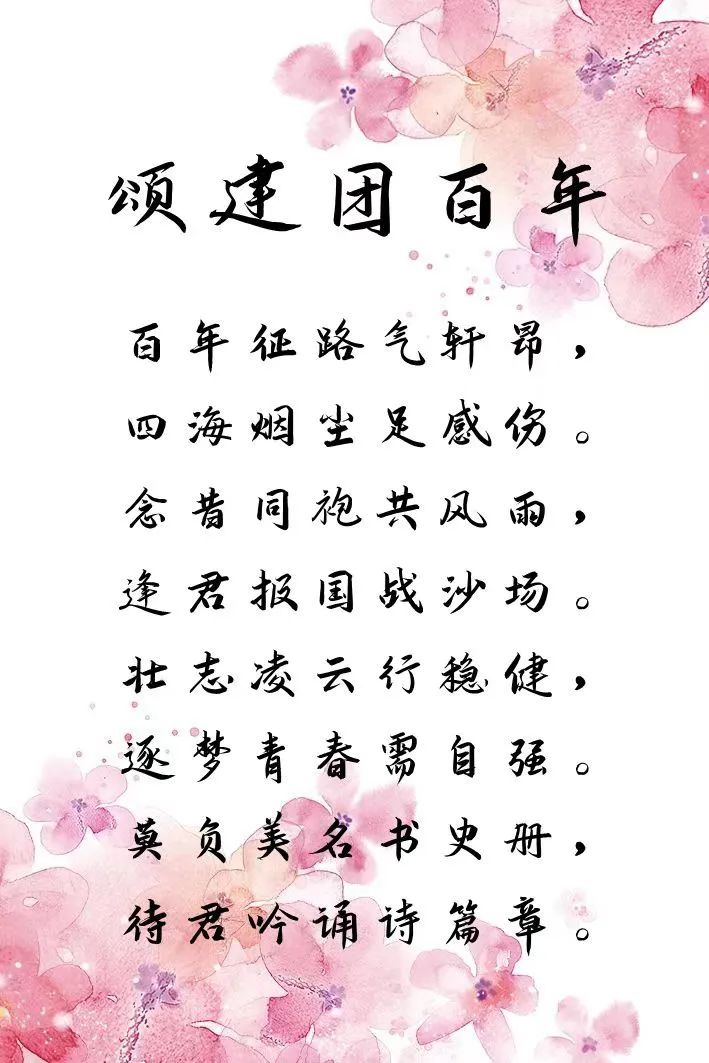 颂建团百年
百年征路气轩昂，
四海烟尘足感伤。
念昔同袍共风雨，
逢君报国战沙场。
壮志凌云行稳健，
逐梦青春需自强。
莫负美名书史册，
待君吟诵诗篇章。